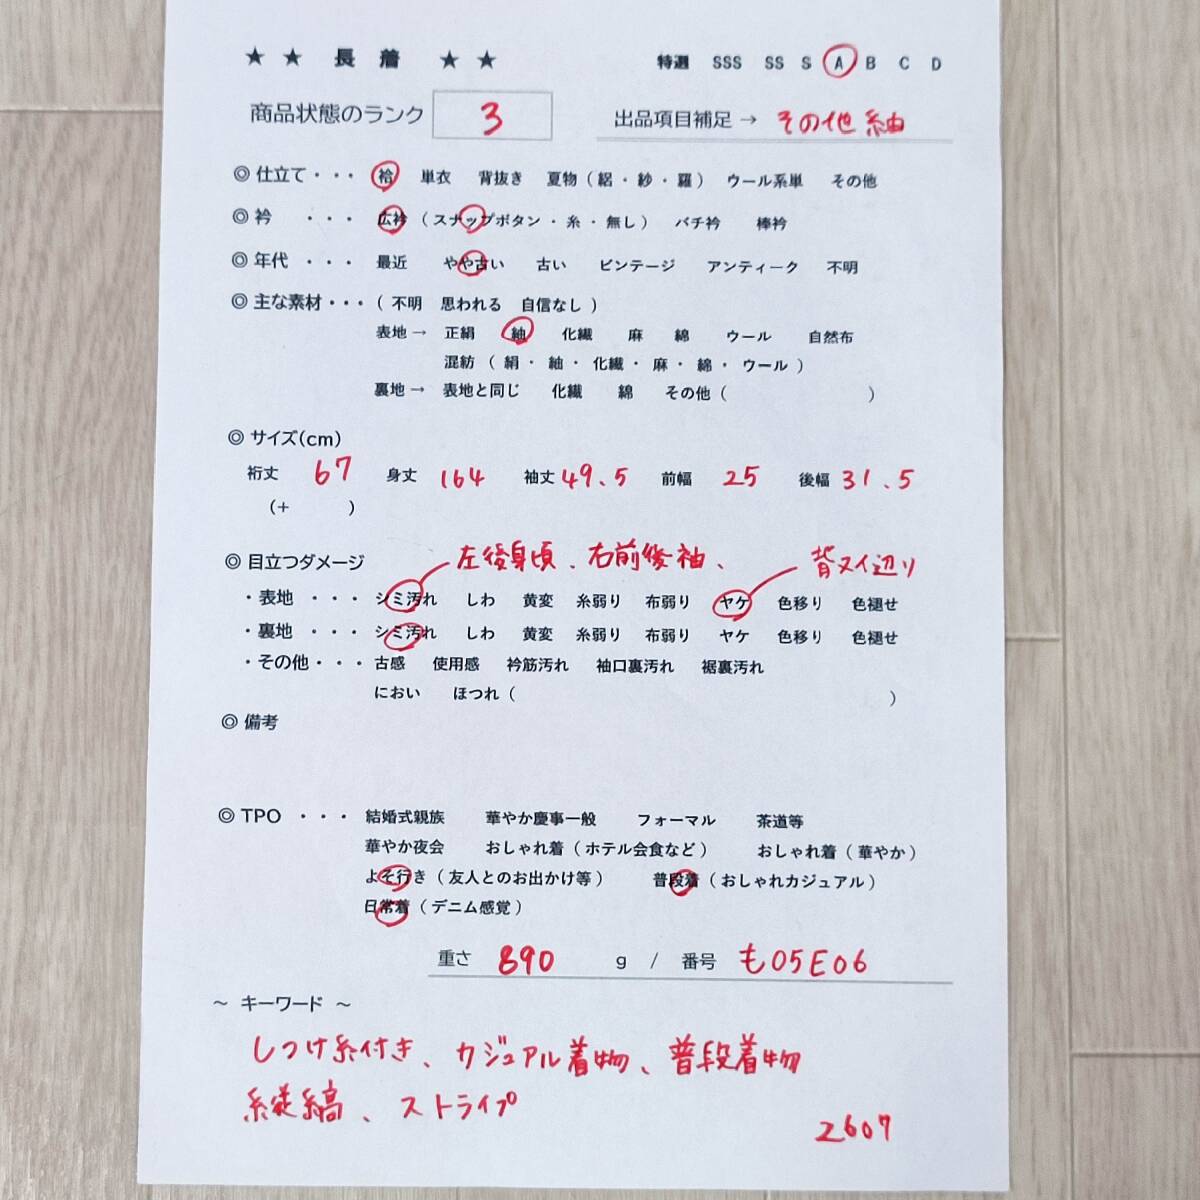 ★ ★ 長 着 ★ ★ 特選 SSS SS S A B C D
商品状態のランク 3 出品項目補足 → その他紬
◎ 仕立て ・・・ 袷 単衣 背抜き 夏物 ( 絽 ・ 紗 ・ 羅 ) ウール系単 その他
◎ 衿 ・・・ 広衿 ( スナップボタン ・ 糸 ・ 無し ) バチ衿 棒衿
◎ 年代 ・・・ 最近 やや古い 古い ビンテージ アンティーク 不明
◎ 主な素材 ・・・ ( 不明 思われる 自信なし )
表地 → 正絹 紬 化繊 麻 綿 ウール 自然布
混紡 ( 絹 ・ 紬 ・ 化繊 ・ 麻 ・ 綿 ・ ウール )
裏地 → 表地と同じ 化繊 綿 その他 ( )
◎ サイズ(cm)
裄丈 67 身丈 164 袖丈 49.5 前幅 25 後幅 31.5
(+ )
◎ 目立つダメージ 左後身頃、右前後袖、 背ヌイ辺り
・表地 ・・・ シミ汚れ しわ 黄変 糸弱り 布弱り ヤケ 色移り 色褪せ
・裏地 ・・・ シミ汚れ しわ 黄変 糸弱り 布弱り ヤケ 色移り 色褪せ
・その他 ・・・ 古感 使用感 衿筋汚れ 袖口裏汚れ 裾裏汚れ
におい ほつれ ( )
◎ 備考
◎ TPO ・・・ 結婚式親族 華やか慶事一般 フォーマル 茶道等
華やか夜会 おしゃれ着 ( ホテル会食など ) おしゃれ着 ( 華やか )
よそ行き ( 友人とのお出かけ等 ) 普段着 ( おしゃれカジュアル )
日常着 ( デニム感覚 )
重さ 890 g / 番号 も05E06
～ キーワード ～
しつけ糸付き、カジュアル着物、普段着物
縦縞、ストライプ
2607